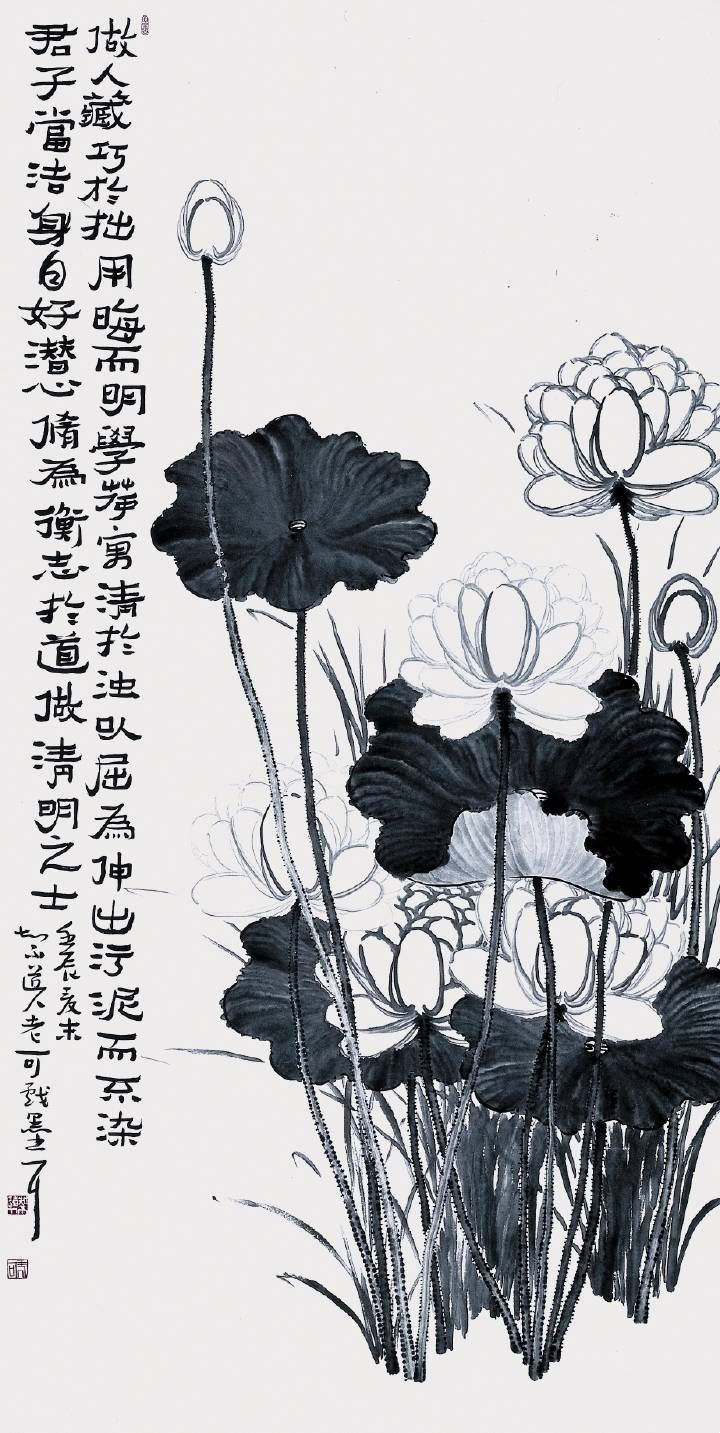 做人藏巧於拙用晦而明學寓清於浊以屈為伸出污泥而不染
君子當洁身自好潛心脩為衡志於道做清明之士
壬辰夏末
道人老可戲墨